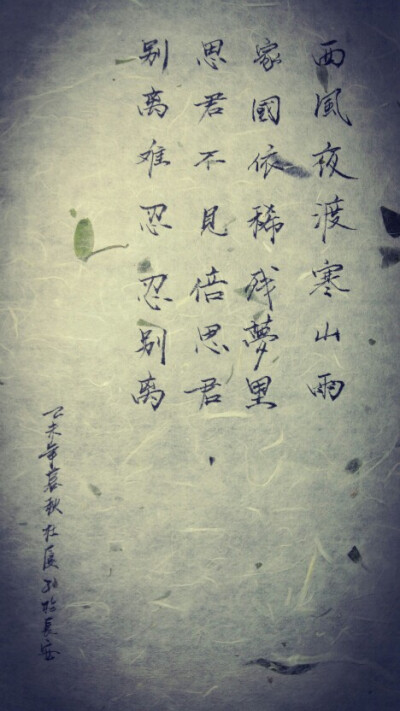 西風夜渡寒山雨
家國依稀残夢里
思君不見倍思君
别离难忍忍别离
乙未年暮秋杜 於長安